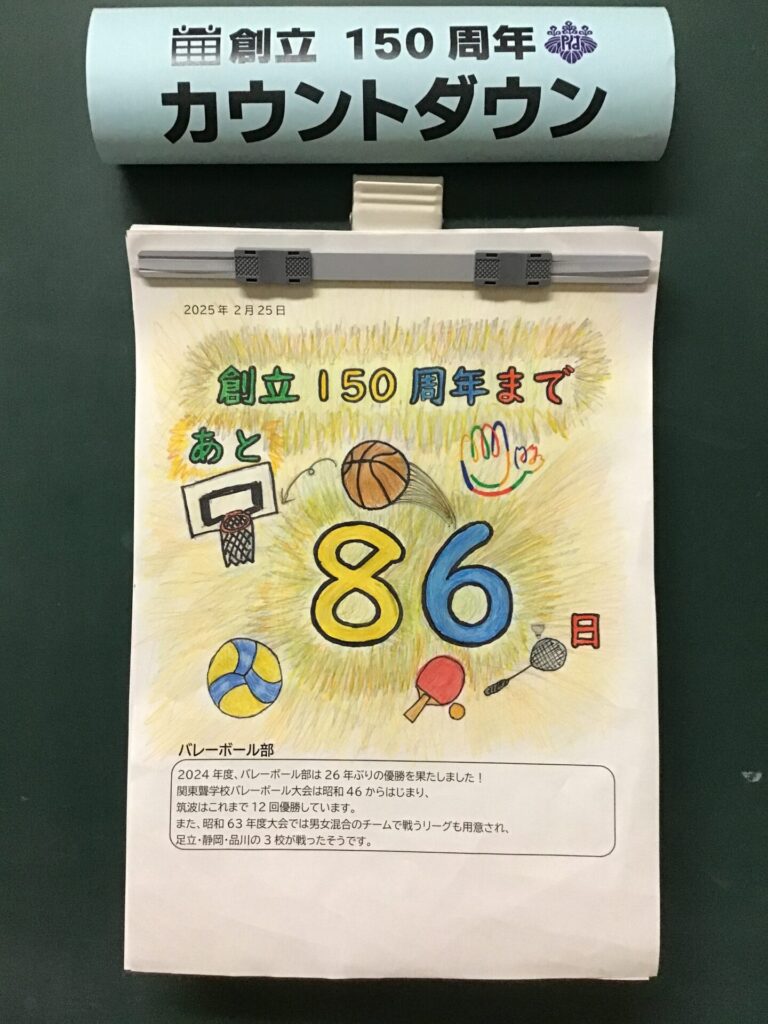 創立 150 周年
カウントダウン
2025年 2月25日
創立150周年まで
あと
86
日
バレーボール部
2024年度、バレーボール部は26年ぶりの優勝を果たしました！
関東聾学校バレーボール大会は昭和46からはじまり、
筑波はこれまで12回優勝しています。
また、昭和63年度大会では男女混合のチームで戦うリーグも用意され、
足立・静岡・品川の3校が戦ったそうです。